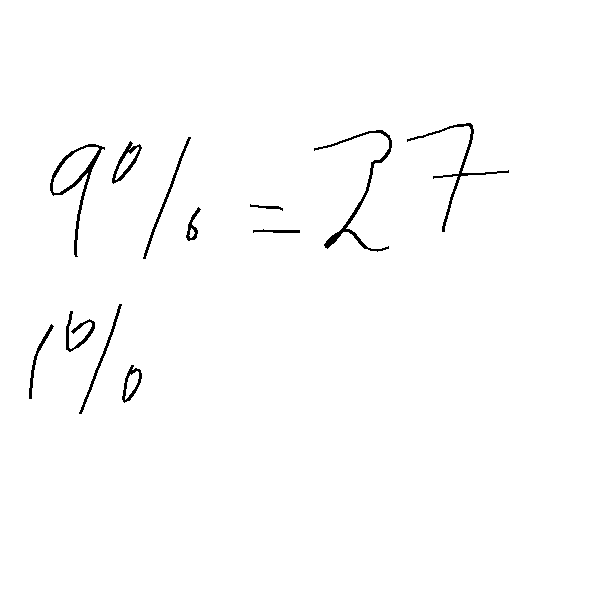 9% = 27
1%